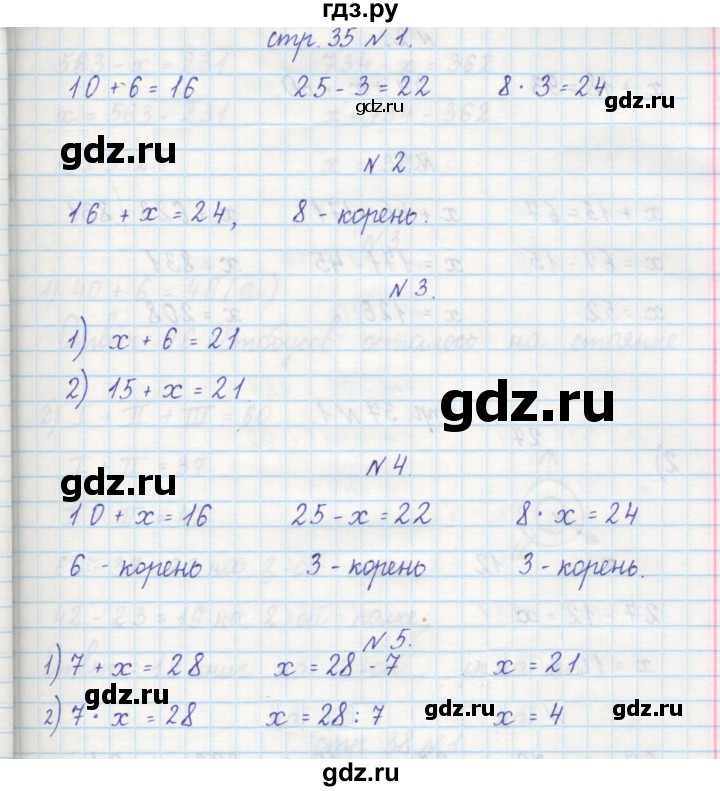 гдз.ру
стр. 35 № 1.
10 + 6 = 16 25 - 3 = 22 8 · 3 = 24
gdz.ru
gdz.ru
gdz.ru
№ 2
16 + x = 24, 8 - корень.
gdz.ru
№ 3.
1) x + 6 = 21
2) 15 + x = 21
gdz.ru
№ 4.
gdz.ru
10 + x = 16 25 - x = 22 8 · x = 24
6 - корень 3 - корень 3 - корень.
№ 5.
1) 7 + x = 28 x = 28 - 7 x = 21
gdz.ru
2) 7 · x = 28 x = 28 : 7 x = 4
gdz.ru
gdz.ru
gdz.ru